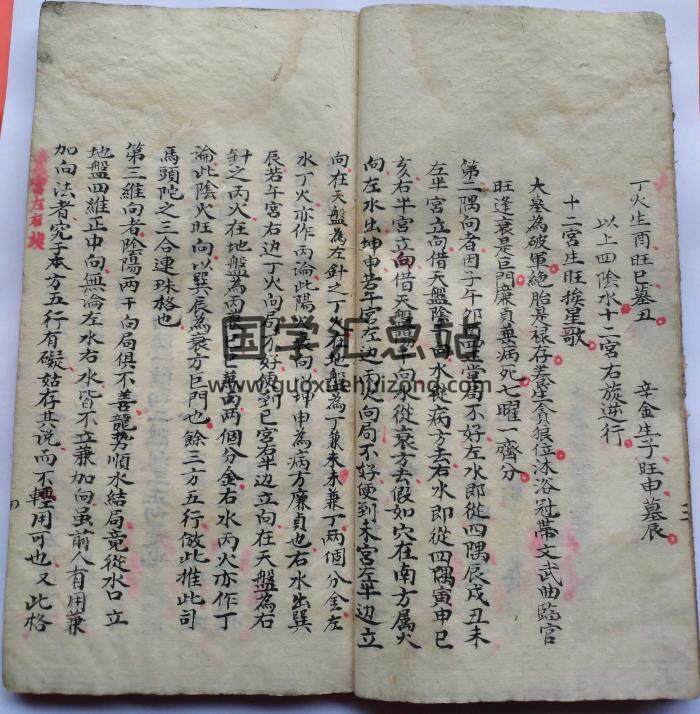 丁火生酉旺巳墓丑　辛金生子旺申墓辰
以上四陰水十二宮右旋逆行
十二宮生旺挨星歌
大墓為破軍絕胎是禄存養生貪狼位沐浴冠帶文武曲臨官
旺逢衰是巨門廉貞兼病死七曜一齊分
第二隅向者因子午卯酉當局不好左水即從四隅辰戌丑未
左半宮立向借天盤陰向水從病方去右水即從四隅寅申巳
亥右半宮立向借天盤陽向水從衰方去假如穴在南方属火
向左水出坤申若午宮左边丙火向局不好便到未宮左半边立
三
向在天盤為左針之丁火在地盤為丁兼未未兼丁两個分金左
水丁火亦作丙論此陽火向坤申為病方廉貞也右水出巽
辰若午宮右边丁火向局不好便到巳宮右半边立向在天盤為右
針之丙火在地盤為丙兼巳丙两個分金右水丙火亦作丁
論此陰火旺向以巽辰為衰方巨門也餘三方五行倣此推此司
馬頭陀之三合連珠格也
第三維向者陰陽两干向局俱不善龍勢順水結局竟從水口立
地盤四維正中向無論左水右水皆不立兼加向虽前人有用兼
加向法者究于本方五行有礙姑存其説而不輕用可也又此格
宮左右
国学汇总站
www.guoxuehuizong.com